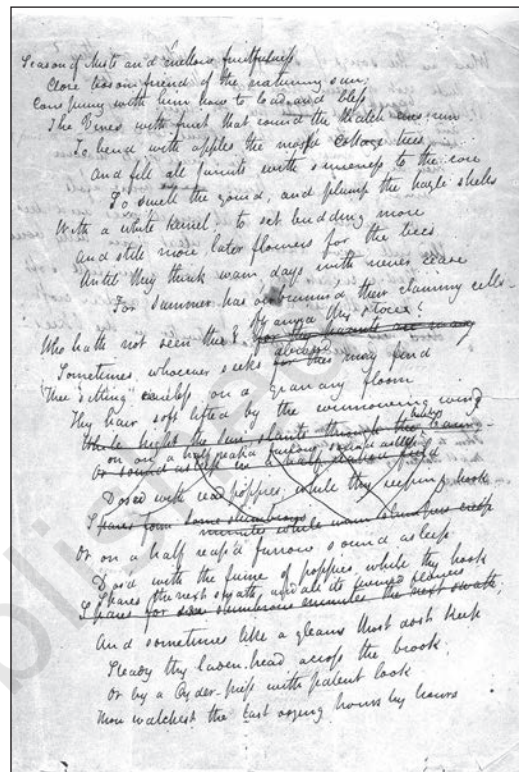 Season of Mists and mellow fruitfulness
Close bosom friend of the maturing sun;
Conspiring with him how to load and bless
The Vines with fruit that round the thatch eves run
To bend with apples the moss'd Cottage trees
And fill all fruits with sweeness to the core
To swell the gourd, and plump the hazle shells
With a white kernel; to set budding more
And still more later flowers for the bees
Until they think wam days with never cease
For Summer has o'erbrimm'd their clammy cells—
Who hath not seen thee?
Sometimes whoever seeks abroad may find
Thee sitting careless on a granary floor
Thy hair soft lifted by the winnowing wind
While bright the Sun slants through the
on on a half reap'd furrow sound asleep
Or sound asleep in a half reaped field
Dosed with read poppies; while thy reeping hook
Spares form some slumbrous
minutes while wam slumpers creep
Or on a half reap'd furrow sound asleep
Dos'd with the fume of poppies, while thy hook
Spares the next swath and all its twined flowers
Spares for some slumbrous minutes the next swath;
And sometimes like a gleans thost dost keep
Steady thy laden head across the brook;
Or by a Cyder-press with patent look
Thou watchest the last oozing hours by hours